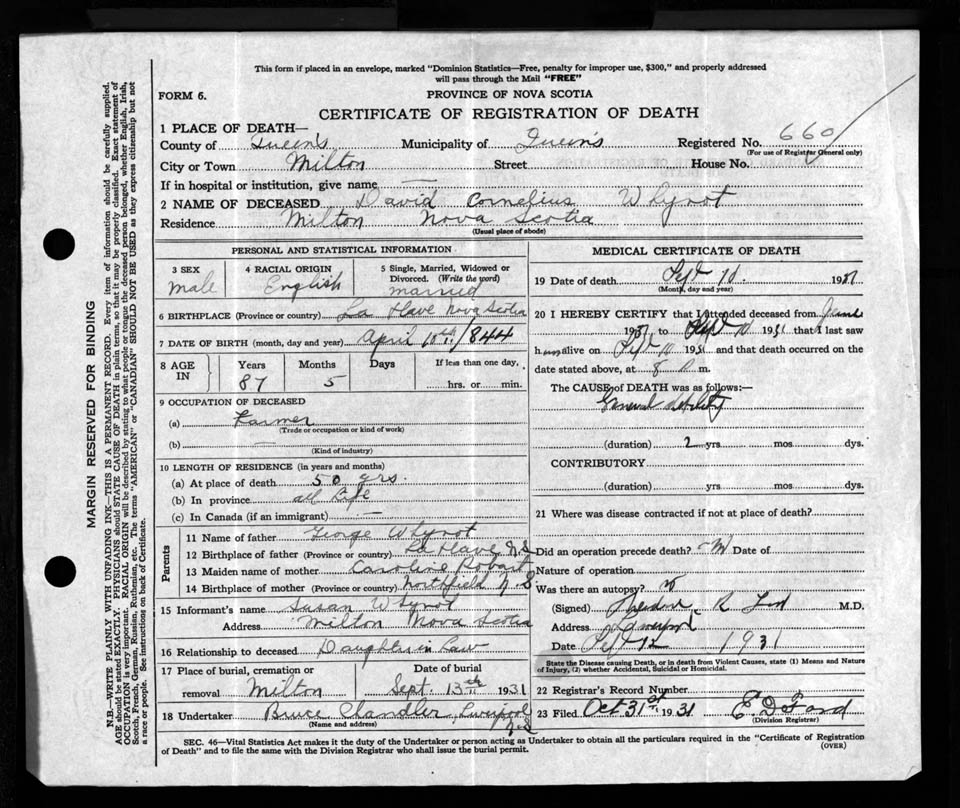 This form if placed in an envelope, marked "Dominion Statistics—Free, penalty for improper use, $300," and properly addressed
will pass through the Mail "FREE"
FORM 6.
PROVINCE OF NOVA SCOTIA
CERTIFICATE OF REGISTRATION OF DEATH
1 PLACE OF DEATH—
County of Queen's Municipality of Queen's Registered No. 660
(For use of Registrar General only)
City or Town Milton Street House No.
If in hospital or institution, give name —
2 NAME OF DECEASED David Cornelius Whynot
Residence Milton Nova Scotia
(Usual place of abode)
PERSONAL AND STATISTICAL INFORMATION
3 SEX
male
4 RACIAL ORIGIN
English
5 Single, Married, Widowed or
Divorced. (Write the word)
married
6 BIRTHPLACE (Province or country) La Have Nova Scotia
7 DATE OF BIRTH (month, day and year) April 10th 1844
8 AGE
IN
Years
87
Months
5
Days
If less than one day,
hrs. or min.
9 OCCUPATION OF DECEASED
(a) Farmer
(Trade or occupation or kind of work)
(b) —
(Kind of industry)
10 LENGTH OF RESIDENCE (in years and months)
(a) At place of death 50 yrs.
(b) In province all life
(c) In Canada (if an immigrant) —
Parents
11 Name of father George Whynot
12 Birthplace of father (Province or country) La Have N.S
13 Maiden name of mother Caroline Robart
14 Birthplace of mother (Province or country) Northfield N.S
15 Informant's name Susan Whynot
Address Milton Nova Scotia
16 Relationship to deceased Daughter in Law
17 Place of burial, cremation or
removal Milton
Date of burial
Sept. 13th 1931
18 Undertaker Bruce Chandler, Liverpool
N.S
(Name and address)
MEDICAL CERTIFICATE OF DEATH
19 Date of death Sept 1931
(Month, day and year)
20 I HEREBY CERTIFY that I attended deceased from
1931 to Sept 1931 that I last saw
h alive on Sept 1931 and that death occurred on the
date stated above, at 8 m.
The CAUSE of DEATH was as follows:—
General debility
(duration) 2 yrs mos dys.
CONTRIBUTORY
(duration) yrs. mos dys.
21 Where was disease contracted if not at place of death?
Did an operation precede death? Date of
Nature of operation
Was there an autopsy? no
(Signed) R M.D.
Address Liverpool
Date Sept 12 1931
State the Disease causing Death, or in death from Violent Causes, state (1) Means and Nature
of Injury, (2) whether Accidental, Suicidal or Homicidal.
22 Registrar's Record Number
23 Filed Oct 31st 1931 E. D. Ford
(Division Registrar)
SEC. 46—Vital Statistics Act makes it the duty of the Undertaker or person acting as Undertaker to obtain all the particulars required in the "Certificate of Registration
of Death" and to file the same with the Division Registrar who shall issue the burial permit.
(OVER)
MARGIN RESERVED FOR BINDING
N.B.—WRITE PLAINLY WITH UNFADING INK—THIS IS A PERMANENT RECORD. Every item of information should be carefully supplied.
AGE should be stated EXACTLY. PHYSICIANS should STATE CAUSE OF DEATH in plain terms, so that it may be properly classified. Exact statement of
OCCUPATION is very important. RACIAL ORIGIN will be described by stating to what people or tongue the deceased person belonged, whether English, Irish,
Scotch, French, German, Russian, Ruthenian, etc. The terms "AMERICAN" or "CANADIAN" SHOULD NOT BE USED as they express citizenship but not
a race or people. See instructions on back of Certificate.